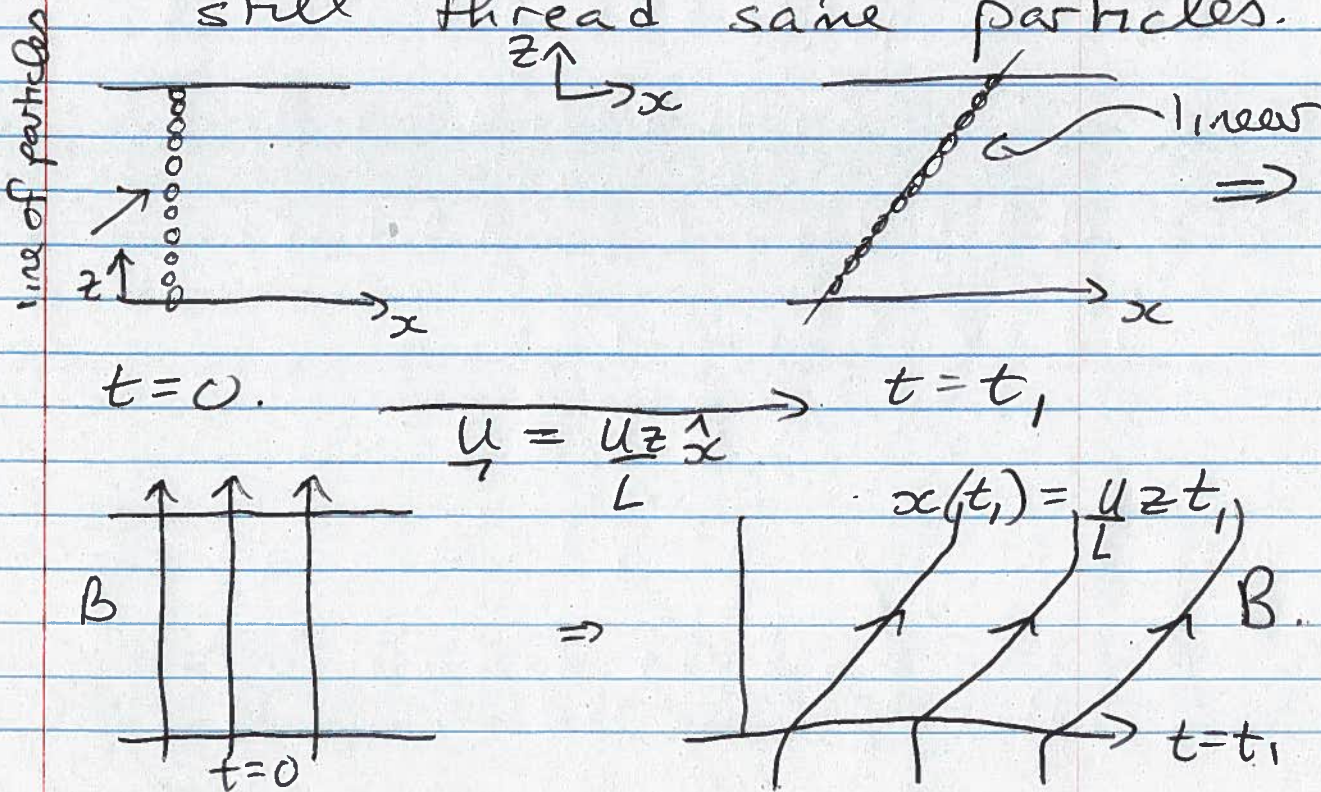 still thread same particles.
line of particles
z
x
linear
⇒
z
x
x
t = 0.
t = t₁
u = Uz/L x̂
x(t₁) = U/L z t₁
B
⇒
B.
t=0
t=t₁